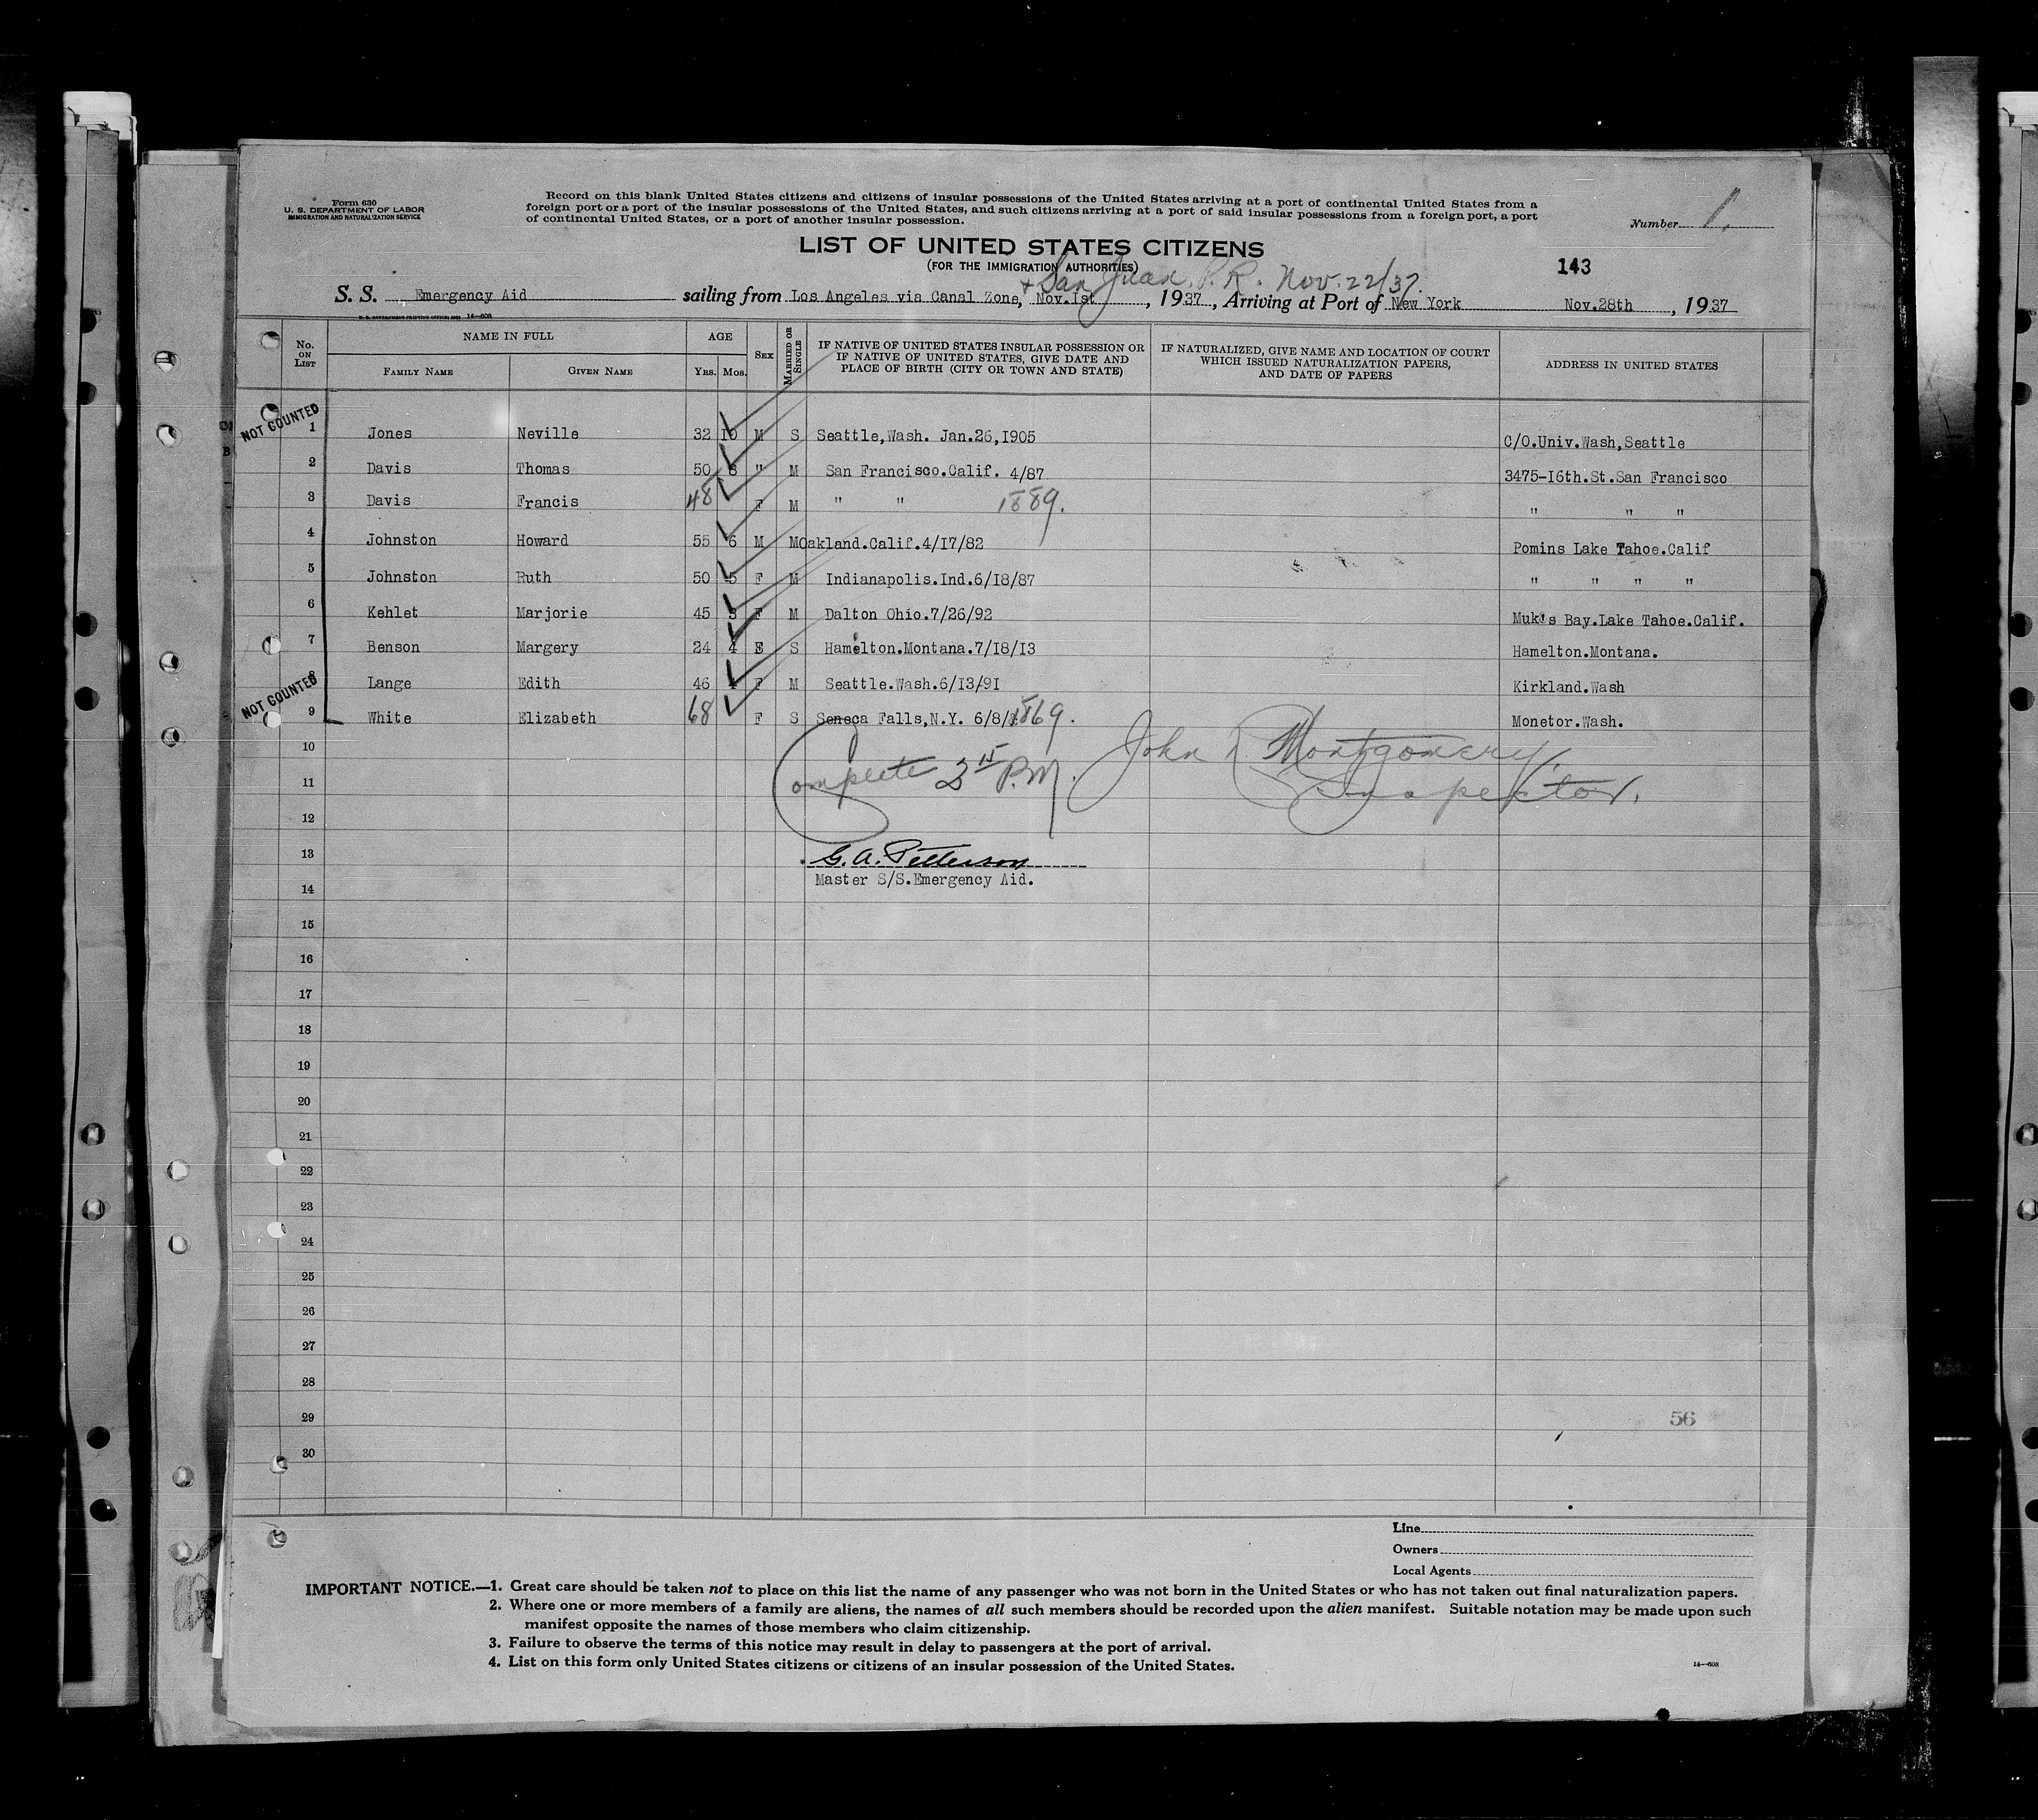 Form 630
U. S. DEPARTMENT OF LABOR
IMMIGRATION AND NATURALIZATION SERVICE
Record on this blank United States citizens and citizens of insular possessions of the United States arriving at a port of continental United States from a
foreign port or a port of the insular possessions of the United States, and such citizens arriving at a port of said insular possessions from a foreign port, a port
of continental United States, or a port of another insular possession.
Number 1.
LIST OF UNITED STATES CITIZENS
(FOR THE IMMIGRATION AUTHORITIES)
143
+ San Juan, P.R. Nov. 22/37.
S. S. Emergency Aid sailing from Los Angeles via Canal Zone, Nov.1st, 1937, Arriving at Port of New York Nov.28th, 1937
No. ON LIST NAME IN FULL FAMILY NAME GIVEN NAME AGE YRS. MOS. SEX MARRIED OR SINGLE IF NATIVE OF UNITED STATES INSULAR POSSESSION OR IF NATIVE OF UNITED STATES, GIVE DATE AND PLACE OF BIRTH (CITY OR TOWN AND STATE) IF NATURALIZED, GIVE NAME AND LOCATION OF COURT WHICH ISSUED NATURALIZATION PAPERS, AND DATE OF PAPERS ADDRESS IN UNITED STATES
NOT COUNTED
1 Jones Neville 32 10 M S Seattle,Wash. Jan.26,1905 C/O.Univ.Wash,Seattle
2 Davis Thomas 50 " M San Francisco.Calif. 4/87 3475-16th.St.San Francisco
3 Davis Francis 48 F M " " 1889. " " "
4 Johnston Howard 55 6 M M Oakland.Calif.4/17/82 Pomins Lake Tahoe.Calif
5 Johnston Ruth 50 5 F M Indianapolis.Ind.6/18/87 " " " "
6 Kehlet Marjorie 45 3 F M Dalton Ohio.7/26/92 Muk's Bay.Lake Tahoe.Calif.
7 Benson Margery 24 4 S Hamelton.Montana.7/18/13 Hamelton.Montana.
NOT COUNTED
8 Lange Edith 46 F M Seattle.Wash.6/13/91 Kirkland.Wash
9 White Elizabeth 68 F S Seneca Falls,N.Y. 6/8/1869. Monetor.Wash.
10
11
Complete 2 15 P.M. John R Montgomery,
Inspector.
12
13
G. A. Petterson
Master S/S.Emergency Aid.
14
15
16
17
18
19
20
21
22
23
24
25
26
27
28
29
56
30
Line
Owners
Local Agents
IMPORTANT NOTICE.—1. Great care should be taken not to place on this list the name of any passenger who was not born in the United States or who has not taken out final naturalization papers.
2. Where one or more members of a family are aliens, the names of all such members should be recorded upon the alien manifest. Suitable notation may be made upon such
manifest opposite the names of those members who claim citizenship.
3. Failure to observe the terms of this notice may result in delay to passengers at the port of arrival.
4. List on this form only United States citizens or citizens of an insular possession of the United States.
14—608